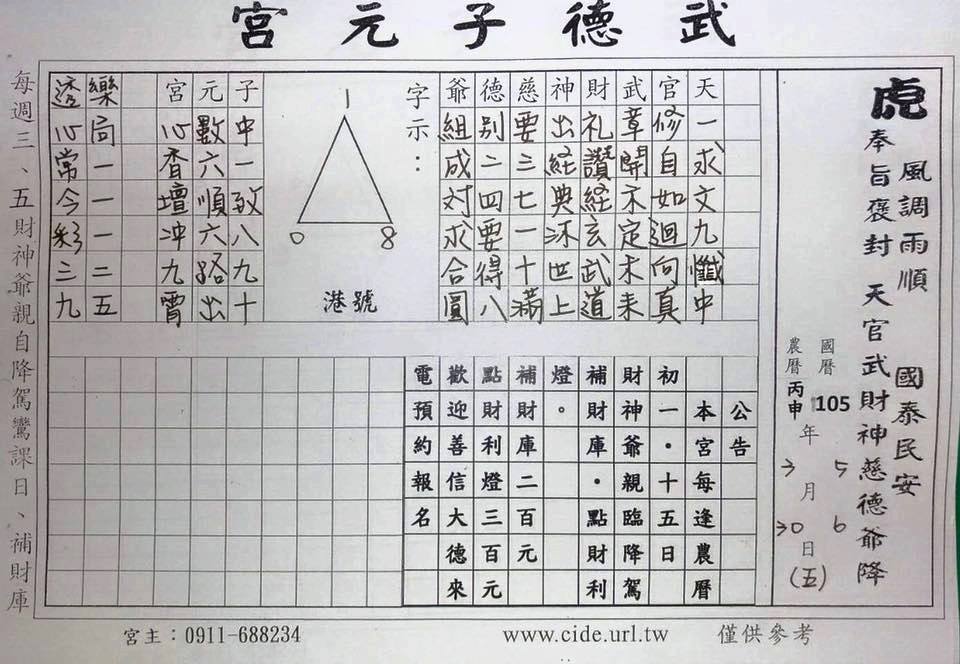 武德子元宮
風調雨順 國泰民安
虎
奉旨褒封 天官武財神慈德爺降
國曆 105 年 5 月 6 日 (五)
農曆 丙申 年 3 月 30 日
天一求文九懺中
官修自如迴向真
武章開不定未来
財礼讚経玄武道
神出経典沐世上
慈要三七一十滿
德别二四要得八
爺組成対求合圓
字示：
1
0 8
港號
子中一致八九十
元數六順六路出
宮心香壇冲九霄
樂局一一一二五
透心常今彩三九
公告
本宮每逢農曆
初一・十五日
財神爺親臨降駕
補財庫・點財利
燈。
補財庫二百元
點財利燈三百元
歡迎善信大德來
電預約報名
每週三、五財神爺親自降駕鸞課日、補財庫
宮主：0911-688234 www.cide.url.tw 僅供參考